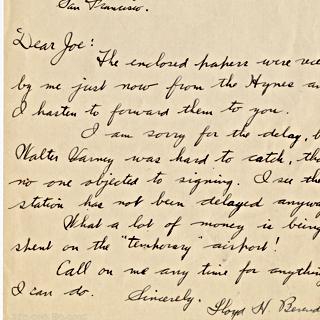 San Francisco.
Dear Joe:
The enclosed papers were rece
by me just now from the Hynes an
I hasten to forward them to you.
I am sorry for the delay, b
Walter Varney was hard to catch, tho
no one objected to signing. I see the
station has not been delayed anyway
What a lot of money is being
spent on the "temporary" airport!
Call on me any time for anything
I can do.
Sincerely,
Lloyd H.